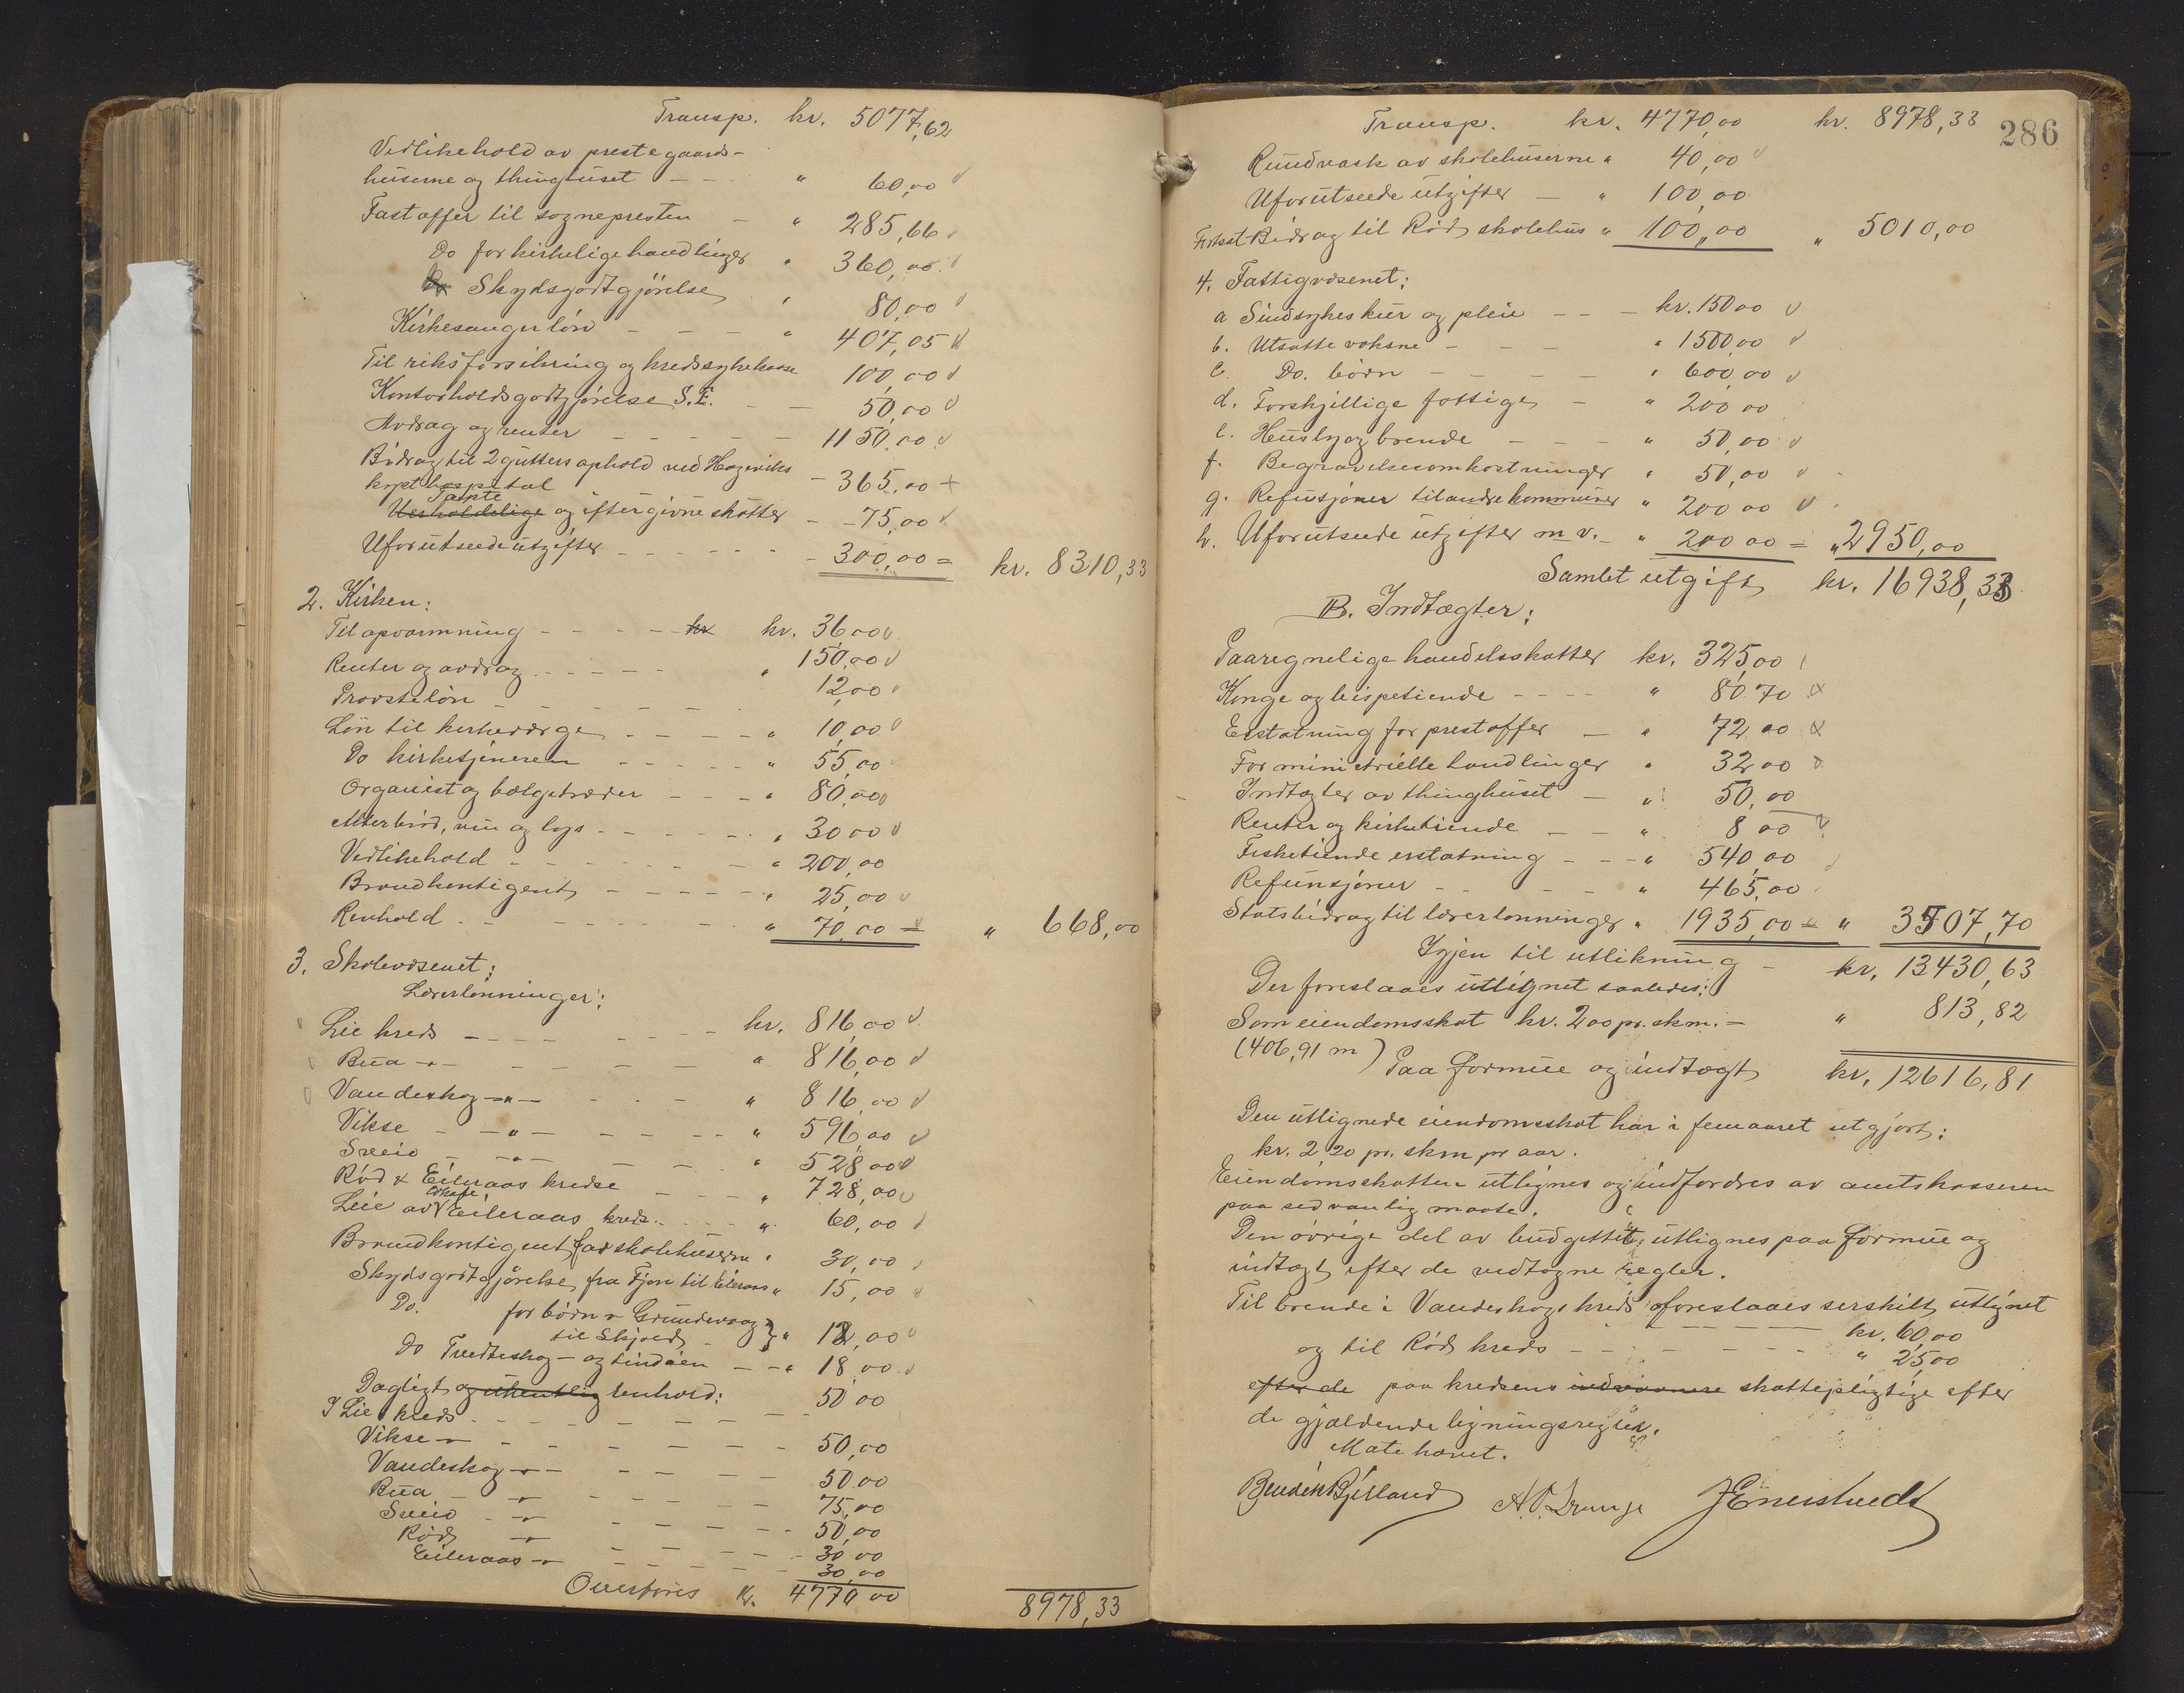 Transp. kr. 5077,62
Vedlikehold av prestegaards-
huserne og thinghuset — " 60,00
Fast offer til sognepresten — " 285,66
Do for kirkelige handlinger " 360,00
Do Skydsgodtgjörelse " 80,00
Kirkesangerlön — — — " 407,05
Til riksforsikring og kredssykekasse 100,00
Kontorholdsgodtgjörelse S.E. — — 50,00
Avdrag og renter — — — 1150,00
Bidrag til 2 gutters ophold ved Hageviks
kysthospital — 365,00 +
Tapte
Uerholdelige og eftergivne skatter — 75,00
Uforutseede utgifter — — — 300,00 = kr. 8310,33
2. Kirken:
Til opvarmning — — — kr kr. 36,00
Renter og avdrag — — — " 150,00
Provstelön — — — 12,00
Lön til kirkeverge — — — " 10,00
Do kirketjeneren — — — " 55,00
Organist og bælgetræder — — — " 80,00
Alterbröd, vin og lys — — — " 30,00
Vedlikehold — — — " 200,00
Brandkontigent — — — " 25,00
Renhold — — — " 70,00 = " 668,00
3. Skolevæsenet:
Lærerlönninger:
Lie kreds — — — kr. 816,00
Bua —"— — — " 816,00
Vandeskog —"— — " 816,00
Vikse —"— — — " 596,00
Sveio —"— — — " 528,00
Röd & Eileraas kredse — — " 728,00
skole
Leie av Eileraas kreds — — " 60,00
Brandkontigent for skolehuserne " 30,00
Skydsgodtgjörelse fra Fjon til Eileraas " 15,00
Do. for börn v Grundevaag
til Skjold } " 12,00
Do Tvedteskog — og Lindöen — — " 18,00
Dagligt og ukentlig renhold:
I Lie kreds — — — 50,00
Vikse —"— — — — 50,00
Vandeskog —"— — — 50,00
Bua —"— — — 75,00
Sveio —"— — — 50,00
Röd —"— — — 30,00
Eileraas —"— — — 30,00
Overföres kr. 4770,00 8978,33
286
Transp. kr. 4770,00 kr. 8978,33
Rundvask av skolehuserne " 40,00
Uforutseede utgifter — " 100,00
Fortsat Bidrag til Röd skolehus " 100,00 " 5010,00
4. Fattigvæsenet:
a Sindsykes kur og pleie — — — kr. 150 00
b. Utsatte voksne — — — " 1500,00
c. Do. börn — — — " 600,00
d. Forskjellige fattige — " 200 00
e. Husly og brende — — — " 50,00
f. Begravelsesomkostninger " 50,00
g. Refusjoner til andre kommuner " 200 00
h. Uforutseede utgifter m v. — " 200 00 = " 2950,00
Samlet utgift kr. 16938,33
B. Indtægter:
Paaregnelige handelsskatter kr. 325,00
Konge og bispetiende — — — " 80 70
Erstatning for prestoffer — " 72 00
For ministrielle handlinger " 32 00
Indtægter av thinghuset — " 50,00
Renter og kirketiende — — " 8 00
Fisketiende erstatning — — " 540,00
Refunsjoner — — — " 465,00
Statsbidrag til lærerlönninger " 1935,00 = " 3507,70
Igjen til utlikning — kr. 13430,63
Der foreslaaes utlignet saaledes:
Som eiendomsskat kr. 2 00 pr. skm. — " 813,82
(406,91 m) Paa formue og indtægt kr. 12616,81
Den utlignede eiendomsskat har i femaaret utgjort:
kr. 2 20 pr. skm pr aar.
Eiendomsskatten utlignes og indfordres av amtskasseren
paa sedvanlig maate.
Den övrige del av budgettet utlignes paa formue og
indtægt efter de vedtagne regler.
Til brende i Vandeskogs kreds foreslaaes serskilt utlignet
— — — kr. 60,00
og til Röd kreds — — — " 25,00
efter de paa kredsens indvaanere skattepligtige efter
de gjældende ligningsregler.
Möte hævet.